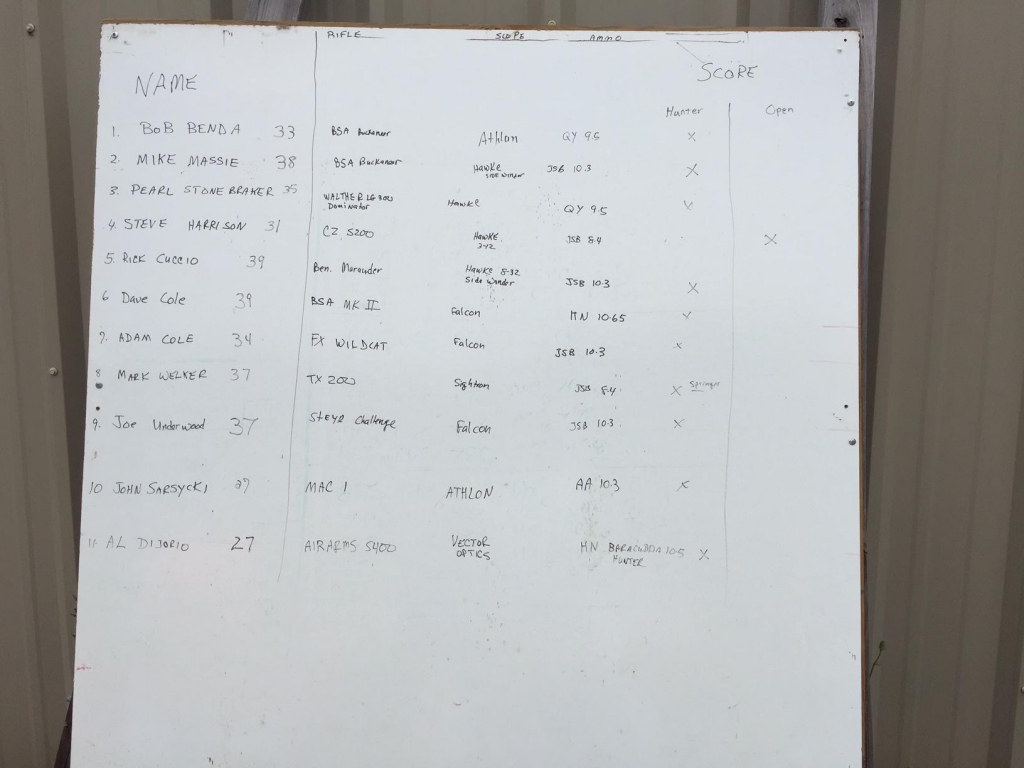 RIFLE SCOPE AMMO
NAME SCORE
Hunter Open
1. BOB BENDA 33 BSA Buckaneer Athlon QY 9.5 X
2. MIKE MASSIE 38 BSA Buccaneer Hawke JSB 10.3 X
SIDE WINDER
3. PEARL STONEBRAKER 35 WALTHER LG300 Hawke QY 9.5 X
Dominator
4. STEVE HARRISON 31 CZ S200 HAWKE JSB 8.4 X
5. RICK CUCCIO 39 Ben. Marauder Hawke 8-32 JSB 10.3 X
Side Winder
6 Dave Cole 39 BSA MK II Falcon HN 10.65 X
7. ADAM COLE 34 FX WILDCAT Falcon JSB 10.3 X
8 MARK WELKER 37 TX 200 Sightron JSB 8.4 X Springer
9. Joe Underwood 37 STEYR Challenge Falcon JSB 10.3 X
10 JOHN SARSYCKI MAC 1 ATHLON AA 10.3 X
11 AL DIJORIO 27 AIRARMS S400 VECTOR HN BARACUDA 10.5 X
OPTICS HUNTER